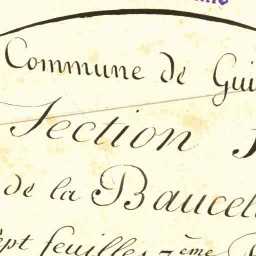 Commune de Gui
Section
de la Baucel
ept feuilles 7ème